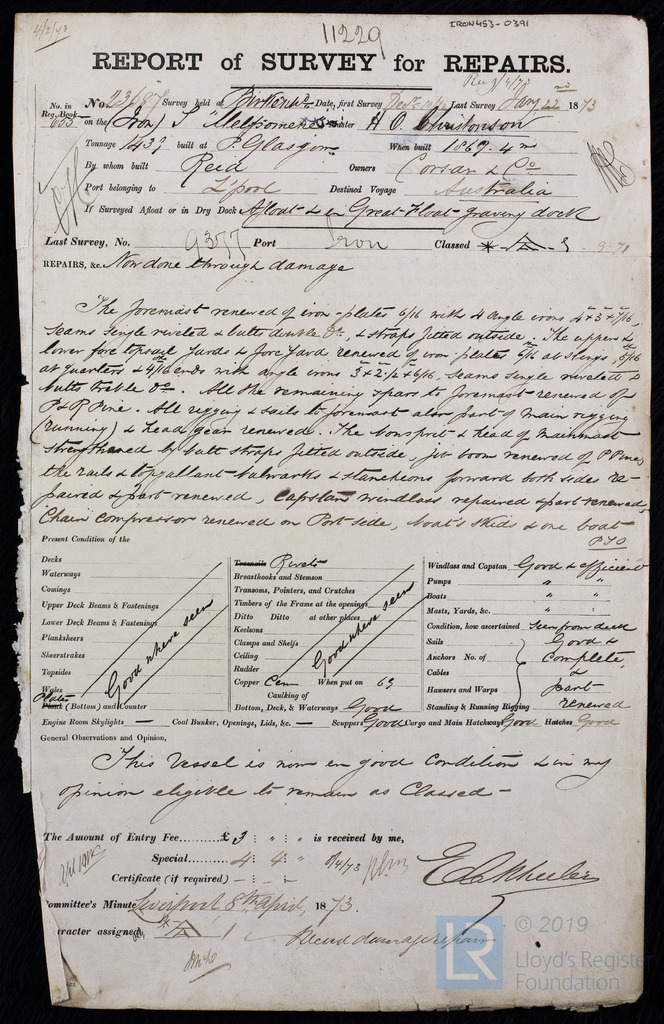 4/2/73
11229
IRON453-0391
REPORT of SURVEY for REPAIRS.
No. in Reg. Book
No. 23087 Survey held at Birkenhd Date, first Survey Last Survey Jany 22nd 1873
603 on the (Iron) S "Melpomene" Master H O Christonson
Tonnage 1432 built at P. Glasgow When built 1869 - 4 m
By whom built Reid Owners Corsar & Co
Port belonging to L'pool Destined Voyage Australia
If Surveyed Afloat or in Dry Dock Afloat & in Great Float graving dock
Last Survey, No. 9377 Port Iron Classed 9-71
REPAIRS, &c. Now done through damage
The foremast renewed of iron - plates 6/16 with 4 angle irons 4 + 3 + 7/16,
Seams single riveted & butts double Do, & straps fitted outside. The upper &
lower fore topsail yards & fore yard, renewed of iron plates 6/16 at slings, 5/16
at quarters & 4/16 ends with angle irons 3 + 2½ + 6/16, seams single riveted &
butts treble Do. All the remaining spars to foremast renewed of
P & R Pine. All rigging & sails to foremast also part of main rigging
(running) & head gear renewed. The bowsprit & head of mainmast
strengthened by butt straps fitted outside, jib boom renewed of P Pine,
the rails & topgallant bulwarks & stanchions forward both sides re-
paired & part renewed, Capstan windlass repaired & part renewed,
Chain compressor renewed on Port side, boat's skids & one boat
PTO
Present Condition of the
Decks
Waterways
Comings
Upper Deck Beams & Fastenings
Lower Deck Beams & Fastenings
Planksheers
Sheerstrakes
Topsides
Wales
Plates Plank (Bottom) and Counter
Good where seen
Treenails Rivets
Breasthooks and Stemson
Transoms, Pointers, and Crutches
Timbers of the Frame at the openings
Ditto Ditto at other places
Keelsons
Clamps and Shelfs
Ceiling
Rudder
Good where seen
Copper Cem When put on 69
Caulking of
Bottom, Deck, & Waterways Good
Windlass and Capstan Good & efficient
Pumps " "
Boats " "
Masts, Yards, &c. " "
Condition, how ascertained Seen from deck
Sails Good &
Anchors No. of complete,
Cables &
Hawsers and Warps part
Standing & Running Rigging renewed
Engine Room Skylights — Coal Bunker, Openings, Lids, &c. — Scuppers Good Cargo and Main Hatchways Good Hatches Good
General Observations and Opinion,
This Vessel is now in good condition & in my
opinion eligible to remain as Classed -
The Amount of Entry Fee.......... £ 3 : " : " is received by me,
Special....... 4 : 4 : " 8/4/73
Certificate (if required) - : - :
Committee's Minute Liverpool 8th April, 1873.
Character assigned,
Record damage repairs
LR
© 2019
Lloyd's Register
Foundation